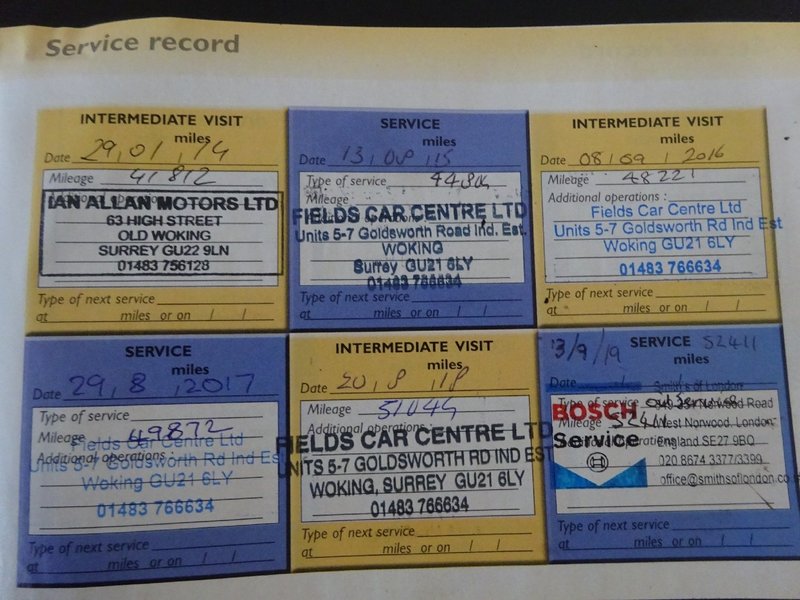 Service record
INTERMEDIATE VISIT
miles
Date 29,01,14
Mileage 41812
IAN ALLAN MOTORS LTD
63 HIGH STREET
OLD WOKING
SURREY GU22 9LN
01483 756128
Type of next service
at miles or on / /
SERVICE
miles
Date 13,08,15
Type of service 44304
Mileage
FIELDS CAR CENTRE LTD
Units 5-7 Goldsworth Road Ind. Est.
WOKING
Surrey GU21 6LY
01483 766634
Type of next service
at miles or on / /
INTERMEDIATE VISIT
miles
Date 08,09,2016
Mileage 48221
Additional operations :
Fields Car Centre Ltd
Units 5-7 Goldsworth Rd Ind Est
Woking GU21 6LY
01483 766634
Type of next service
at miles or on / /
SERVICE
miles
Date 29,8,2017
Type of service
Mileage 49872
Fields Car Centre Ltd
Additional operations :
Units 5-7 Goldsworth Rd Ind Est
Woking GU21 6LY
01483 766634
Type of next service
at miles or on / /
INTERMEDIATE VISIT
miles
Date 20,8,18
Mileage 51044
Additional operations :
FIELDS CAR CENTRE LTD
UNITS 5-7 GOLDSWORTH RD IND EST
WOKING, SURREY GU21 6LY
01483 766634
Type of next service
at miles or on / /
13/9/19 SERVICE 52411
miles
Date
Smiths of London
Type of service
Norwood Road
BOSCH
Mileage 52411
West Norwood, London
Service
England SE27 9BQ
020 8674 3377/3399
office@smithsoflondon.co
Type of next service
at miles or on / /